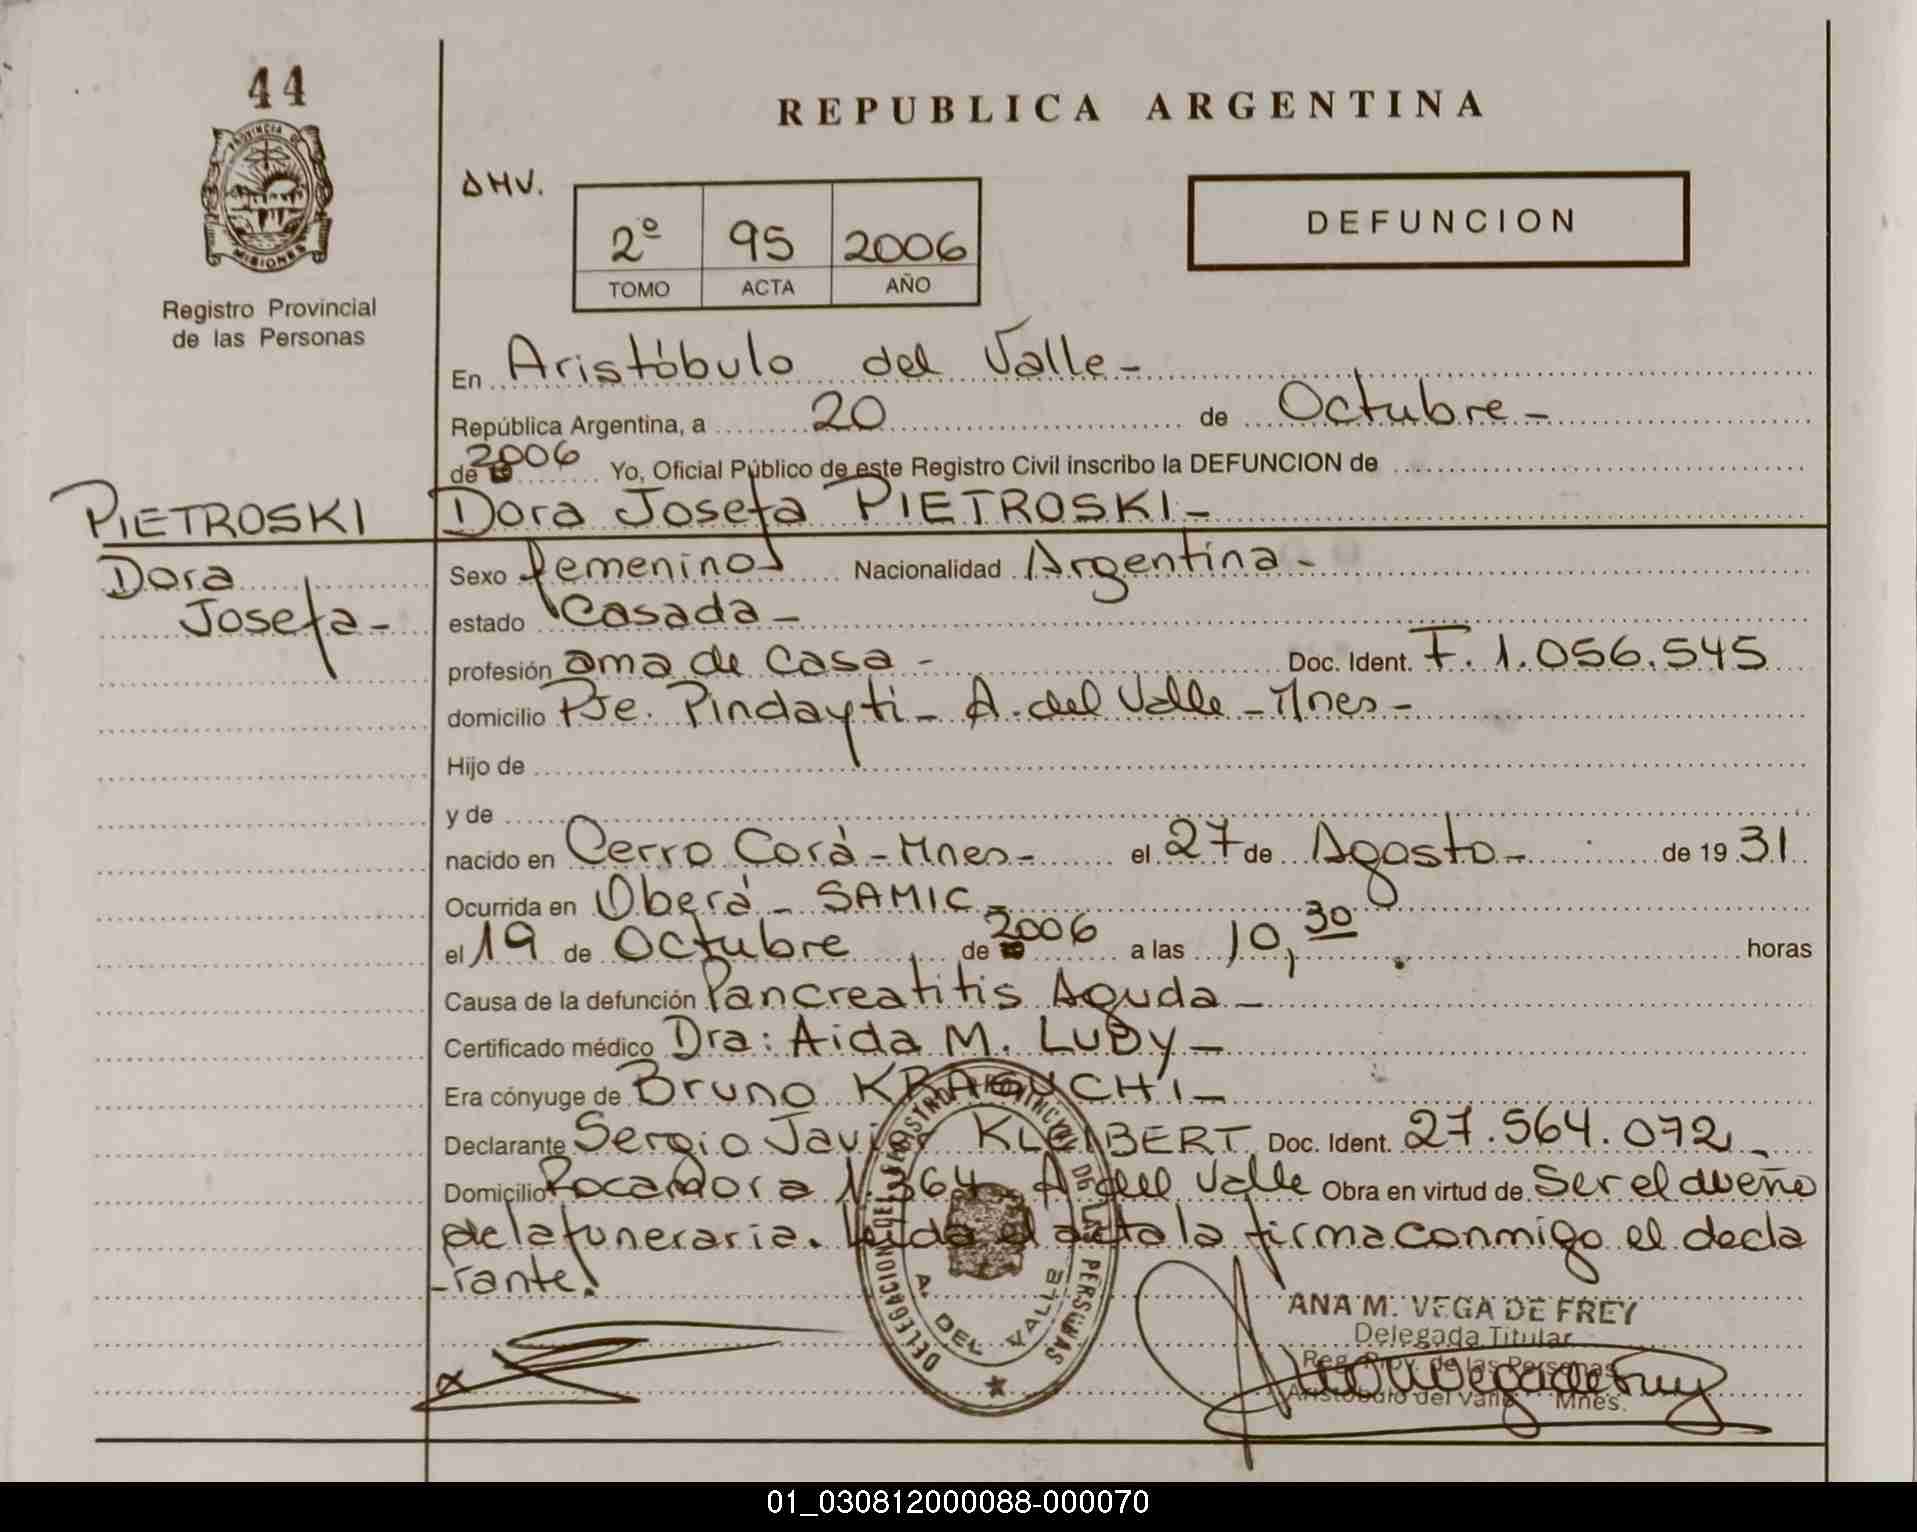 44
PROVINCIA DE
MISIONES
Registro Provincial
de las Personas
REPUBLICA ARGENTINA
DHV.
2º 95 2006
TOMO ACTA AÑO
DEFUNCION
En Aristóbulo del Valle-
República Argentina, a 20 de Octubre-
de 2006 Yo, Oficial Público de este Registro Civil inscribo la DEFUNCION de
PIETROSKI Dora Josefa PIETROSKI-
Dora
Josefa-
Sexo femenino Nacionalidad Argentina-
estado Casada-
profesión ama de casa- Doc. Ident. F. 1.056.545
domicilio Pje. Pindayti- A. del Valle-Mnes-
Hijo de
y de
nacido en Cerro Corá-Mnes- el 27 de Agosto- de 19 31
Ocurrida en Oberá- SAMIC-
el 19 de Octubre de 2006 a las 10,30 horas
Causa de la defunción Pancreatitis Aguda-
Certificado médico Dra: Aida M. LUBY-
Era cónyuge de Bruno KRAGUCHI-
Declarante Sergio Javier KLEIBERT Doc. Ident. 27.564.072-
Domicilio Rocamora N. 364 A. del Valle Obra en virtud de Ser el dueño
de la funeraria. Leida el acta la firma conmigo el decla
-rante.
DELEGACION DEL REGISTRO PROVINCIAL DE LAS PERSONAS
A. DEL VALLE
ANA M. VEGA DE FREY
Delegada Titular
Reg. Prov. de las Personas
Aristóbulo del Valle Mnes.
01_030812000088-000070